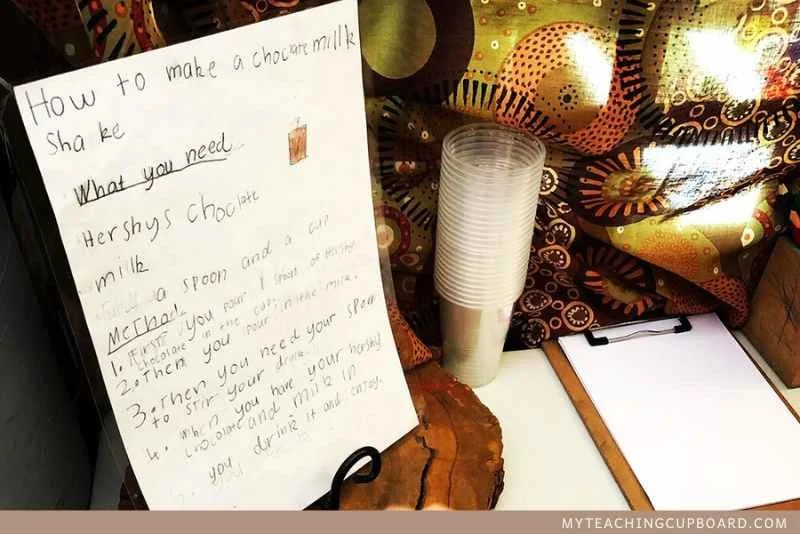 How to make a choclate millk
Sha ke
What you need
Hershys choclate
milk
a spoon and a cup
Method
1. First you pour 1 spoon of Hershys
chocolate in the cup.
2. Then you pour in the milk.
3. Then you need your spoon
to stir your drink.
4. When you have your hershys
chocolate and milk in
you drink it and enjoy.
MYTEACHINGCUPBOARD.COM